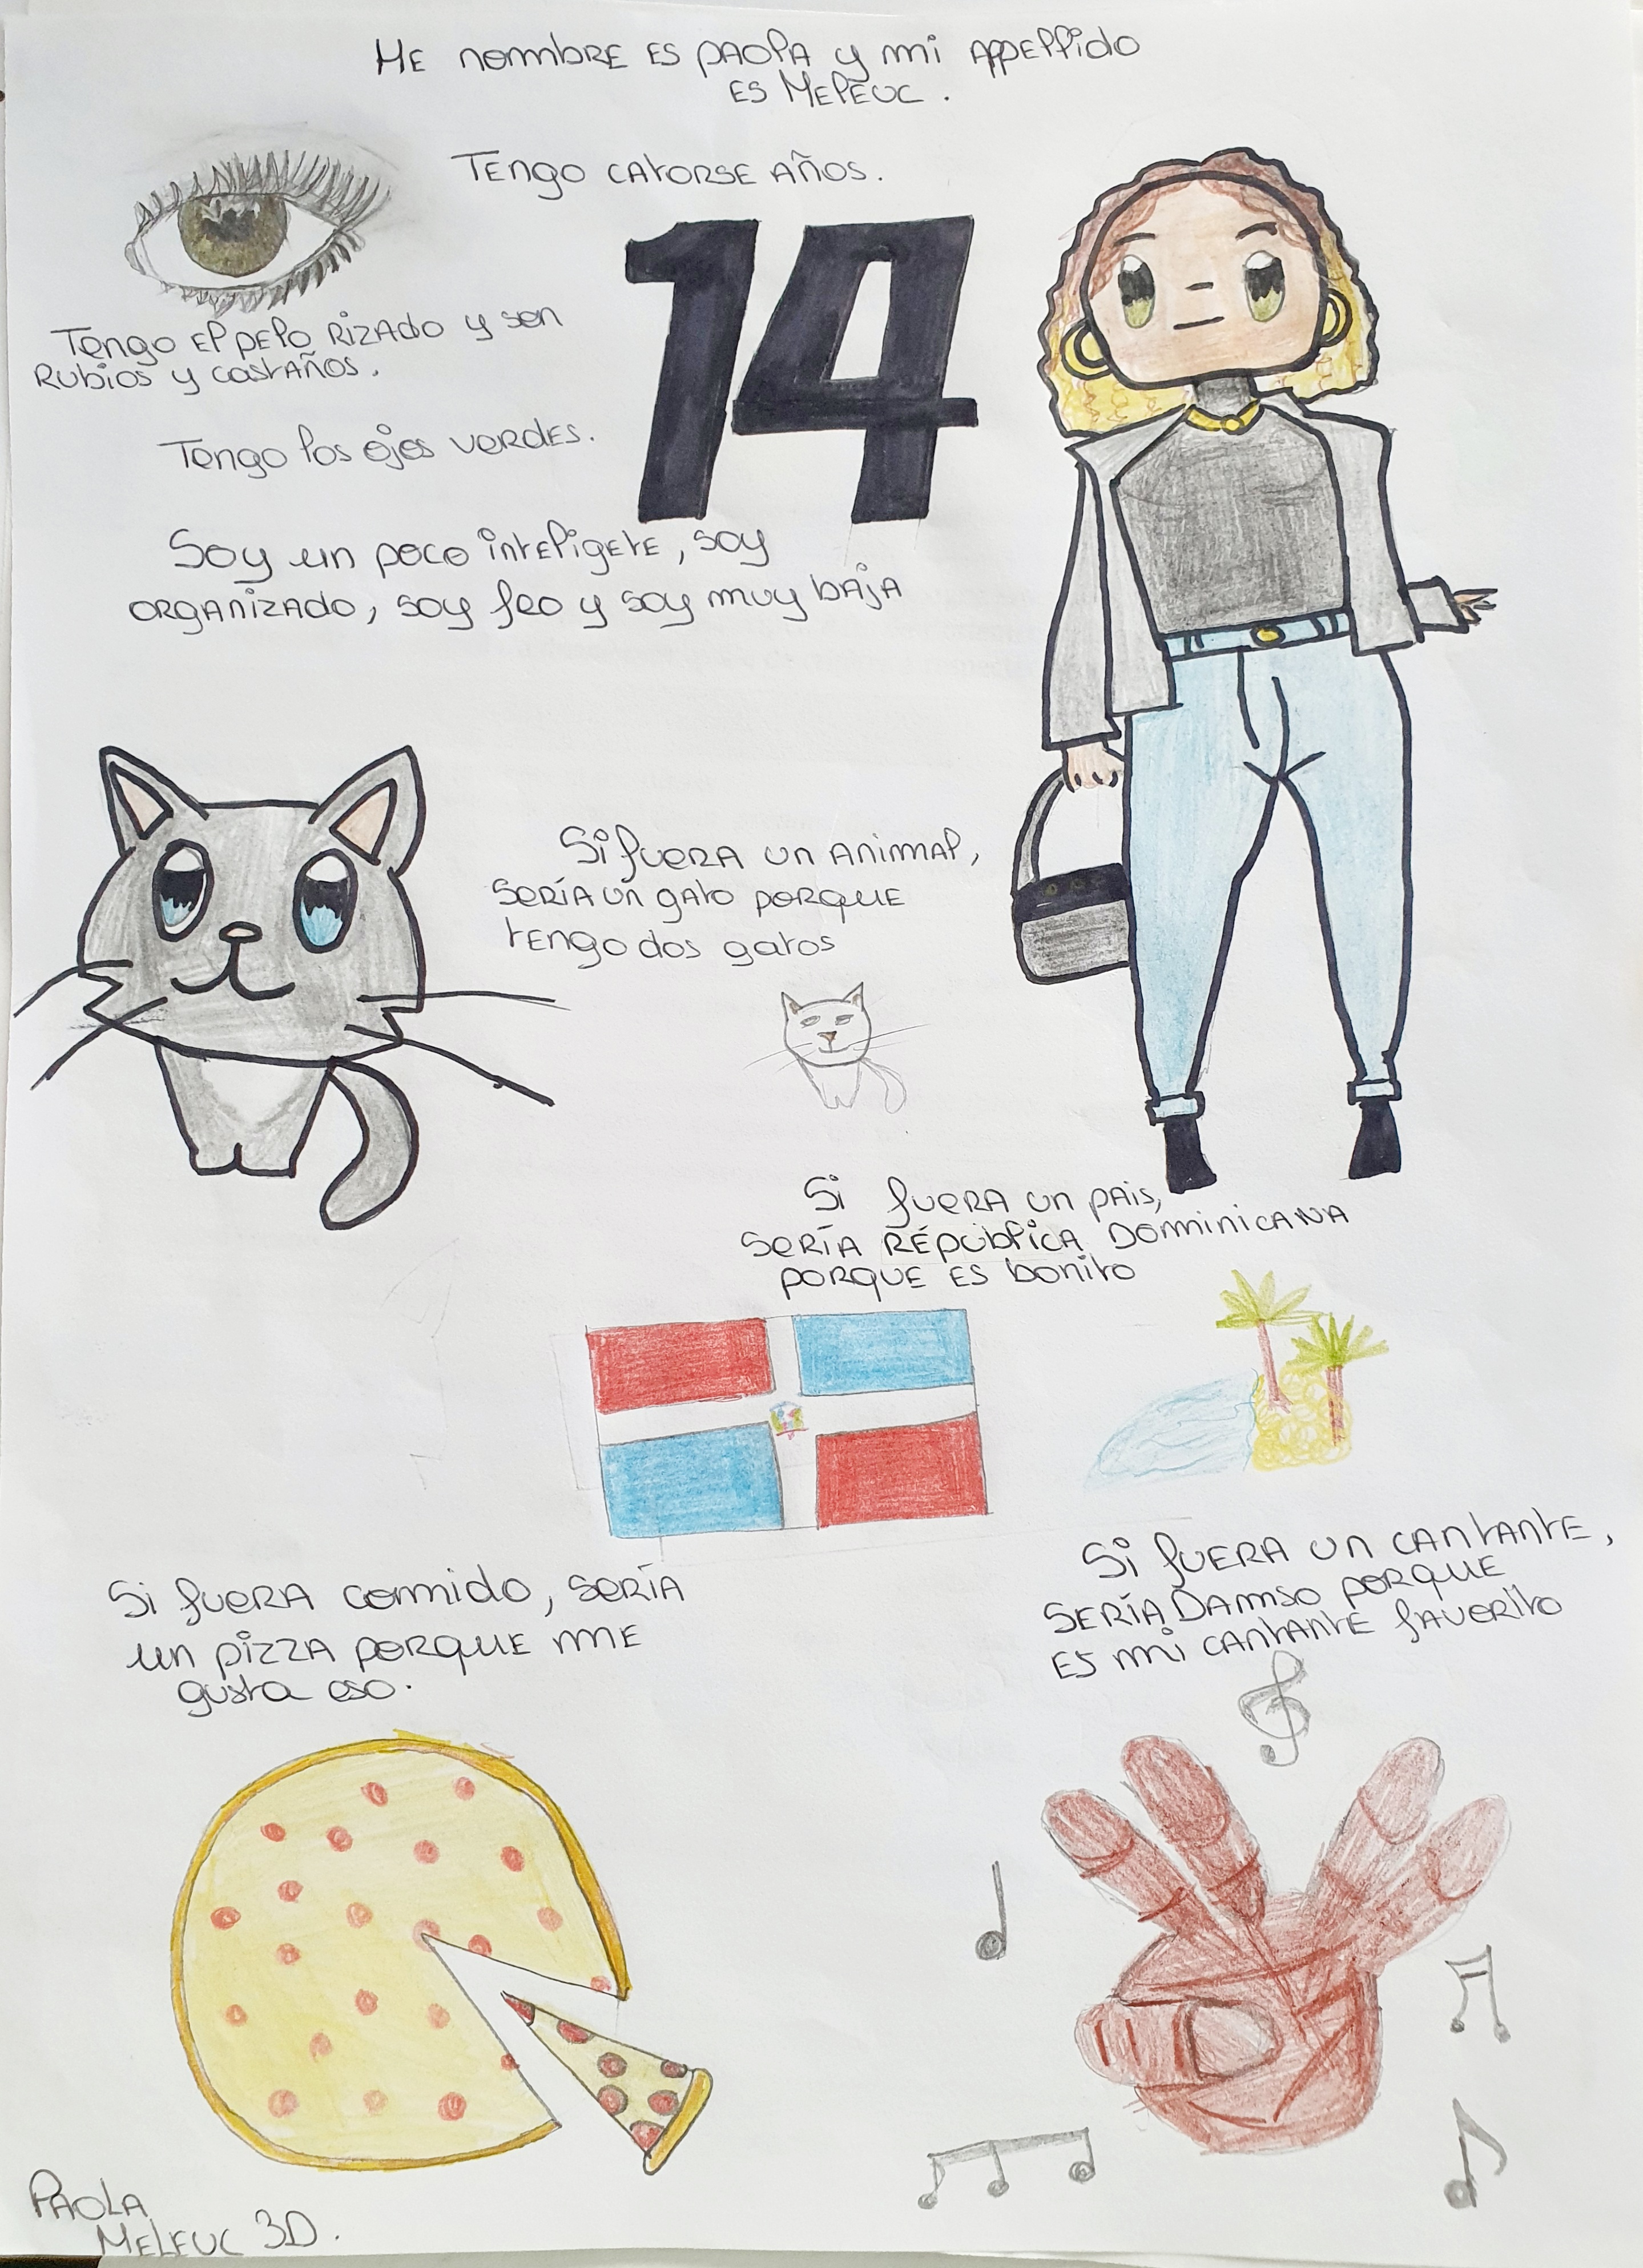 He nombre es paola y mi appellido
es Meleuc.
Tengo catorse años.
14
Tengo el pelo rizado y son
rubios y castaños.
Tengo los ojos verdes.
Soy un poco inteligete, soy
organizado, soy feo y soy muy baja
Si fuera un animal,
sería un gato porque
tengo dos gatos
Si fuera un pais,
sería Républica Dominicana
porque es bonito
Si fuera un cantante,
sería Damso porque
es mi cantante favorito
Si fuera comido, sería
un pizza porque me
gusta eso.
Paola
Meleuc 3D.